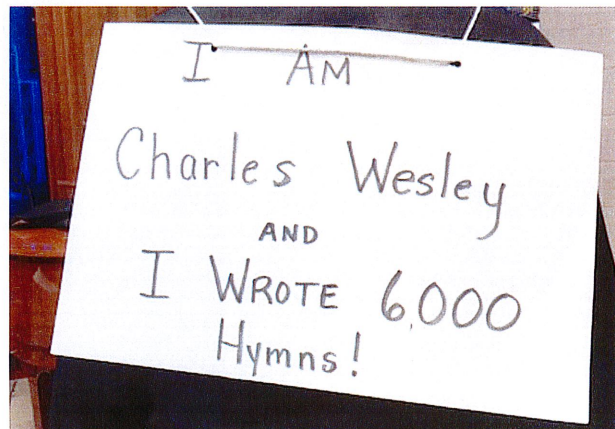 I AM
Charles Wesley
AND
I WROTE 6,000
Hymns!